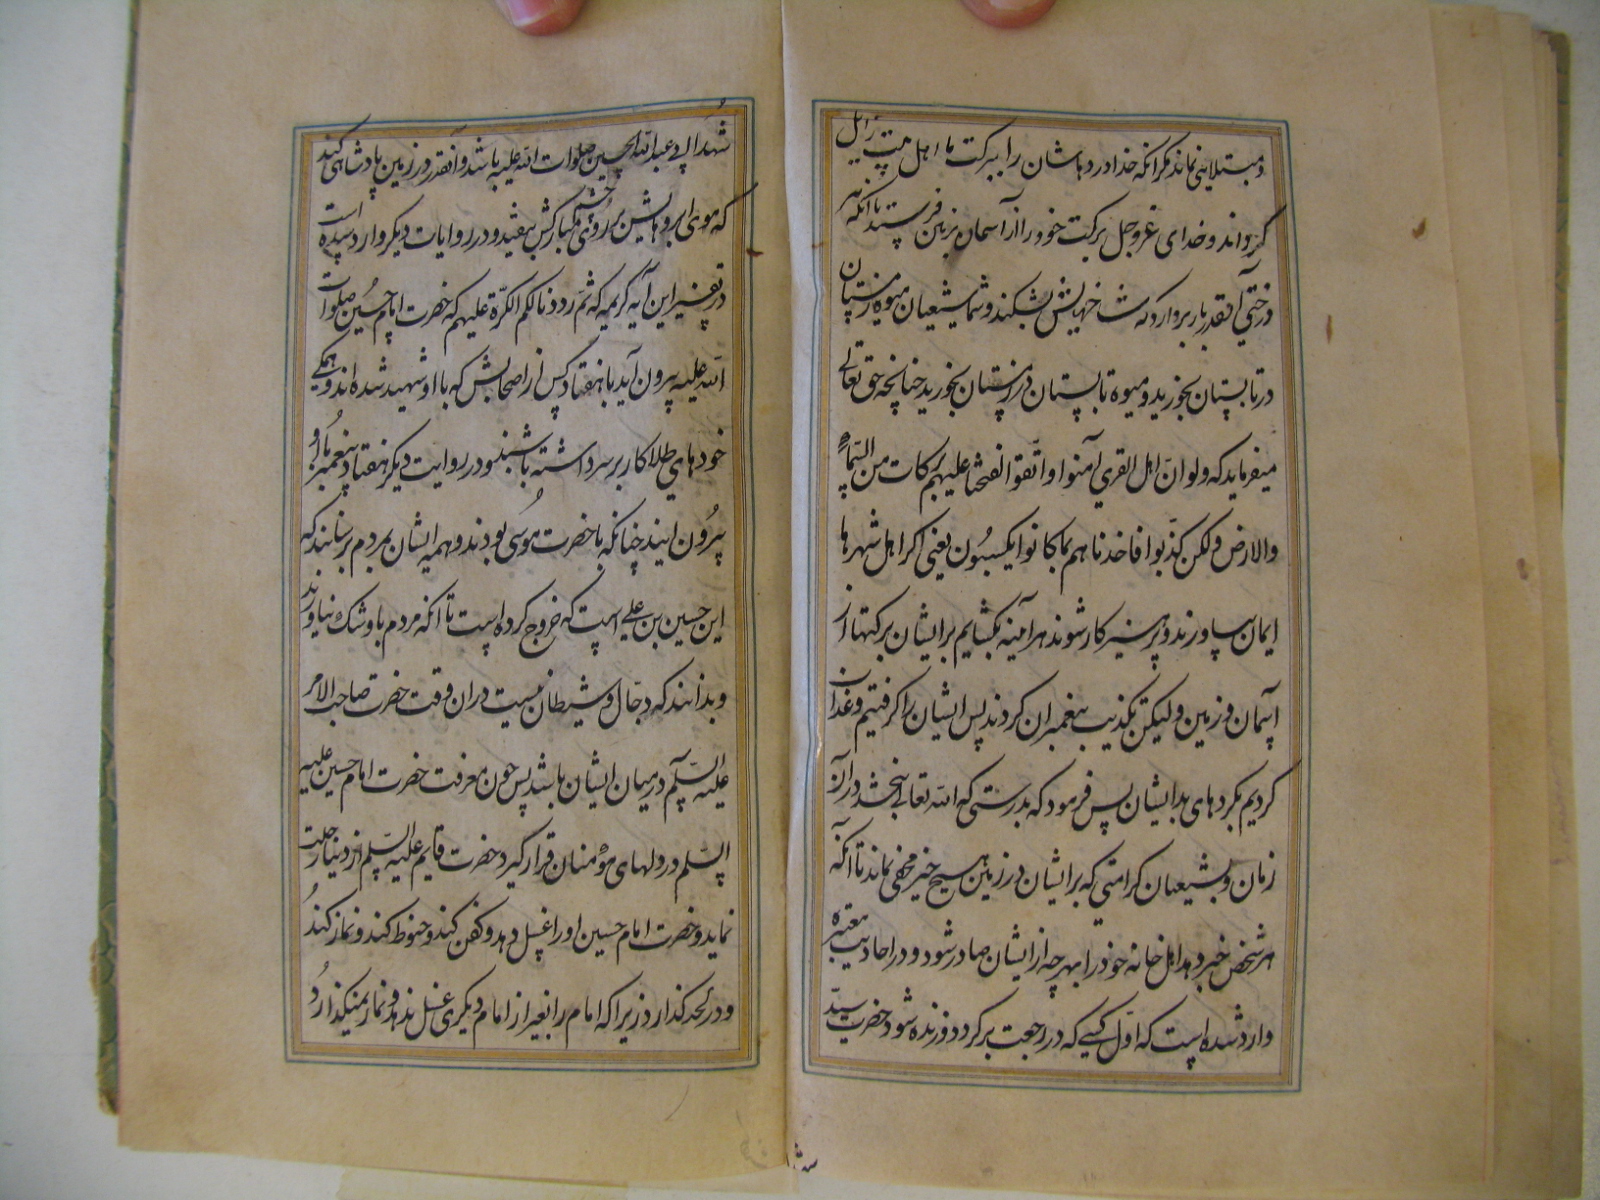 و مبتلایی نماند مگر آنکه خدا دردهاشان را ببرکت ما اهل بیت زایل
گرداند و خدای عزوجل برکت خود را از آسمان بزمین فرستد تا آنکه هر
درختی آنقدر بار بردارد که شاخهایش بشکند و شما شیعیان میوه زمستان
در تابستان بخورید و میوه تابستان در زمستان بخورید چنانچه حق تعالی
میفرماید که ولو انّ اهل القری آمنوا و اتّقوا لفتحنا علیهم برکات من السّماء
والارض ولکن کذّبوا فاخذناهم بما کانوا یکسبون یعنی اگر اهل شهرها
ایمان بیاورند و پرهیزکار شوند هرآینه بگشایم بر ایشان برکتها از
آسمان و زمین ولیکن تکذیب پیغمبران کردند پس ایشان را گرفتیم و عذاب
کردیم بکردهای بد ایشان پس فرمود که بدرستی که الله تعالی ببخشد در آن
زمان بشیعیان کرامتی که بر ایشان در زمین هیچ خبر مخفی نماند تا آنکه
هر شخص خبر دهد اهل خانه خود را بهرچه از ایشان صادر شود و در احادیث معتبره
وارد شده است که اوّل کسی که در رجعت برگردد و زنده شود حضرت سیّد
شهدا ابی عبدالله الحسین صلوات الله علیه باشد و آنقدر در زمین پادشاهی کند
که موی ابروهایش بر روی چشم مبارکش بیفتد و در روایات دیگر وارد شده است
در تفسیر این آیه کریمه که ثمّ رددنا لکم الکرّة علیهم که حضرت امام حسین صلوات
الله علیه بیرون آید با هفتاد کس از اصحابش که با او شهید شده اند و همکی
خودهای طلاکار بر سر داشته باشند و در روایت دیگر هفتاد پیغمبر با او
بیرون آیند چنانکه با حضرت موسی بودند و همه ایشان بمردم برسانند که
این حسین بن علی است که خروج کرده است تا آنکه مردم باو شک نیاورند
و بدانند که دجّال و شیطان نیست در آن وقت حضرت صاحب الامر
علیه السّلام در میان ایشان باشد پس چون معرفت حضرت امام حسین علیه
السّلم در دلهای مؤمنان قرار گیرد حضرت قایم علیه السّلم از دنیا رحلت
نماید و حضرت امام حسین او را غسل دهد و کفن کند و حنوط کند و نماز کند
و در لحد گذارد زیرا که امام را بغیر از امام دیگری غسل ندهد و نماز نمیگذارد